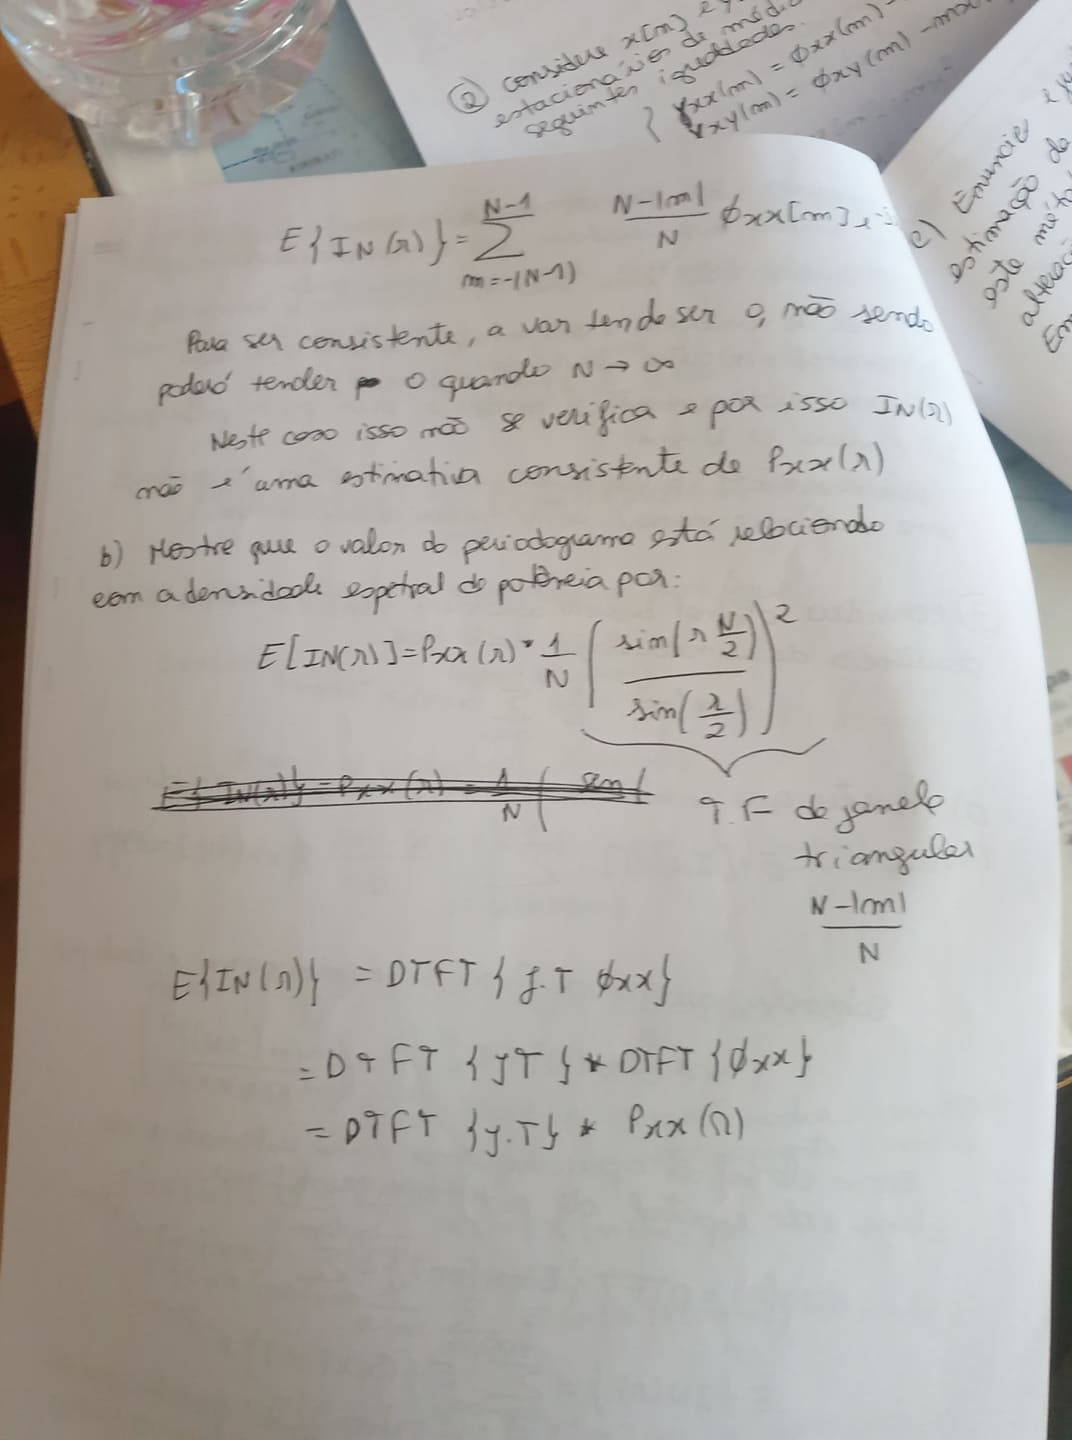 ② considere x[m] e y
estacionários de média
seguintes igualdades.
{ γxx(m) = ϕxx(m) -
γxy(m) = ϕxy(m) - mx
c) Enuncie
estimação de
este méto
alteraçã
Em
E{IN(Ω)} = ∑_{m=-(N-1)}^{N-1} \frac{N-|m|}{N} ϕxx[m] e^{-j
Para ser consistente, a var tende ser 0, não sendo
poderá tender p 0 quando N → ∞
Neste caso isso não se verifica e por isso IN(Ω)
não é uma estimativa consistente de Pxx(Ω)
b) Mostre que o valor do periodograma está relaciondo
com a densidade espetral de potência por:
E[IN(Ω)] = Pxx(Ω) * \frac{1}{N} \left( \frac{sin(Ω \frac{N}{2})}{sin(\frac{Ω}{2})} \right)^2
E{IN(Ω)} = Pxx(Ω) = \frac{1}{N} ( sen(
T.F da janela
triangular
\frac{N-|m|}{N}
E{IN(Ω)} = DTFT { J.T ϕxx}
= DTFT {JT} * DTFT {ϕxx}
= DTFT {J.T} * Pxx(Ω)